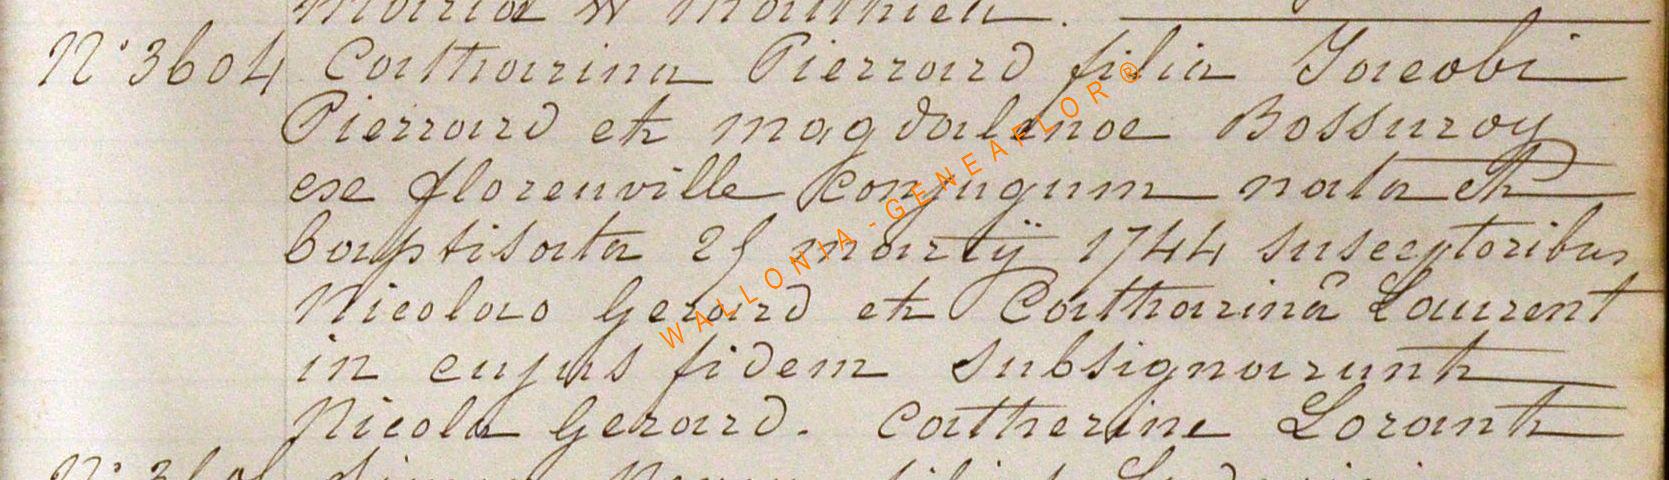 maria W mathieu.
N° 3604 Catharina Pierrard filia Jacobi
Pierrard et magdalenae Bossuroy
ex florenville conjugum nata et
baptisata 25 martij 1744 susceptoribus
Nicolao Gerard et Catharinâ Laurent
in cujus fidem subsignarunt
Nicola Gerard. Catherine Lorant
WALLONIA-GENEAFLOR®